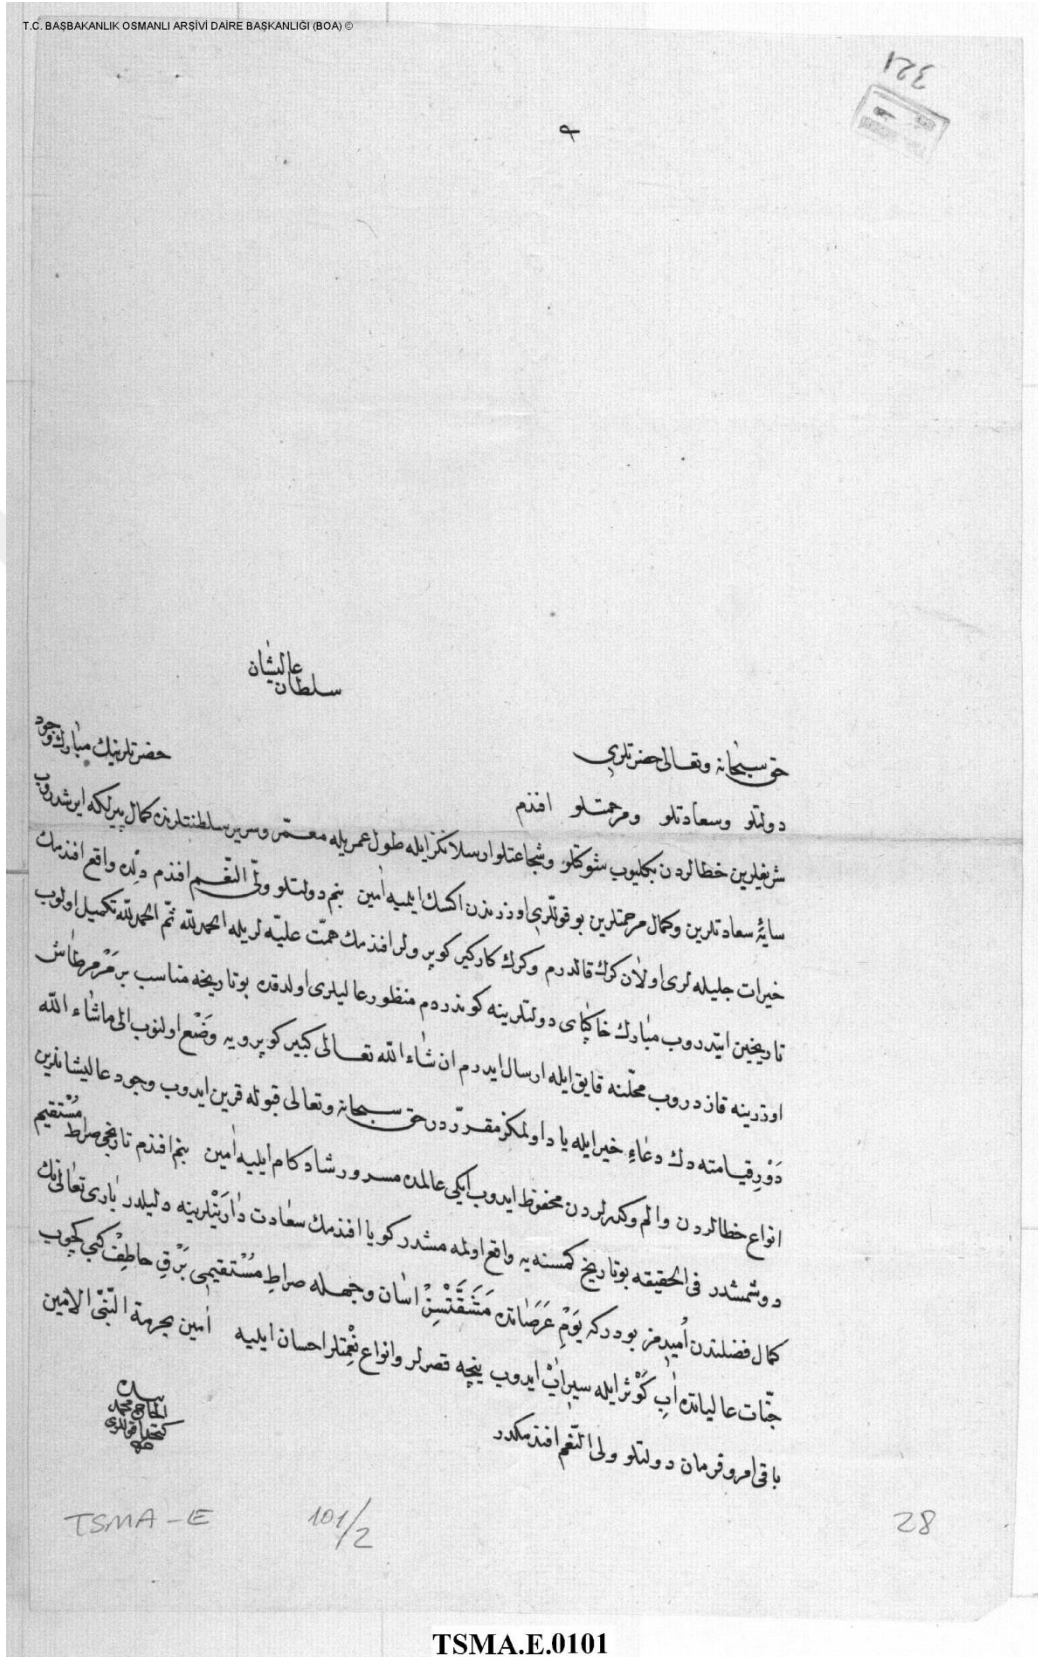 T.C. BAŞBAKANLIK OSMANLI ARŞİVİ DAİRE BAŞKANLIĞI (BOA) ©
321
سلطان عاليشان
حق سبحانه وتعالى حضرتلرى
حضرتلرينك مبارك وجود
دولتلو وسعادتلو ومرحمتلو افندم
شريفلرين خطالردن بكليوب شوكتلو وشجاعتلو ارسلانكز ايله طول عمريله معمّر وسرير سلطنتلرنده كمال پيرلكه ايرشدروب
سايهٔ سعادتلرين وكمال مرحمتلرين بو قوللرى اوزرمزدن اكسك ايلميه امين بنم دولتلو ولىّ النّعم افندم واقع افندمك
خيرات جليله لرى اولان كرك قالدرم وكرك كاركير كوپرولر افندمك همّت عليّه لريله الحمد لله ثمّ الحمد لله تكميل اولوب
تاريخين ايتدروب مبارك خاكپاى دولتلرينه كوندردم منظور عاليلرى اولدقده بو تاريخه مناسب بر مرمر طاش
اوزرينه قازدروب محلّنه قايق ايله ارسال ايدرم ان شاء الله تعالى كبير كوپرويه وضع اولنوب الى ماشاء الله
دَوْرِ قيامته دك دعاءِ خير ايله ياد اولمكز مقرّردر حق سبحانه وتعالى قبوله قرين ايدوب وجود عاليشانلرين
انواع خطالردن والم وكدرلردن محفوظ ايدوب ايكى عالمده مسرور شادكام ايليه امين بنم افندم تاريخى صراط مُسْتقيم
دوشمشدر فى الحقيقه بو تاريخ كمسنه يه واقع اولمه مشدر كويا افندمك سعادت دٰارَيْنلرينه دليلدر بارى تعالى نك
كمال فضلندن اُميدمز بودركه يَوْمِ عَرَصاتده مَشَقَّتْسِزْ اسان وجمله صراطِ مُسْتقيمى بَرْقِ حاطِفْ كبى كچوب
جنّات عالياتده اٰبِ كَوْثَر ايله سيراب ايدوب نيچه قصرلر وانواع نِعْمتلر احسان ايليه اٰمين بحرمة النّبىّ الامين
باقى امر وفرمان دولتلو ولى النّعم افندمكدر
بنده
الحاج محمد
كتخدا قوللرى
TSMA-E 101/2 28
TSMA.E.0101